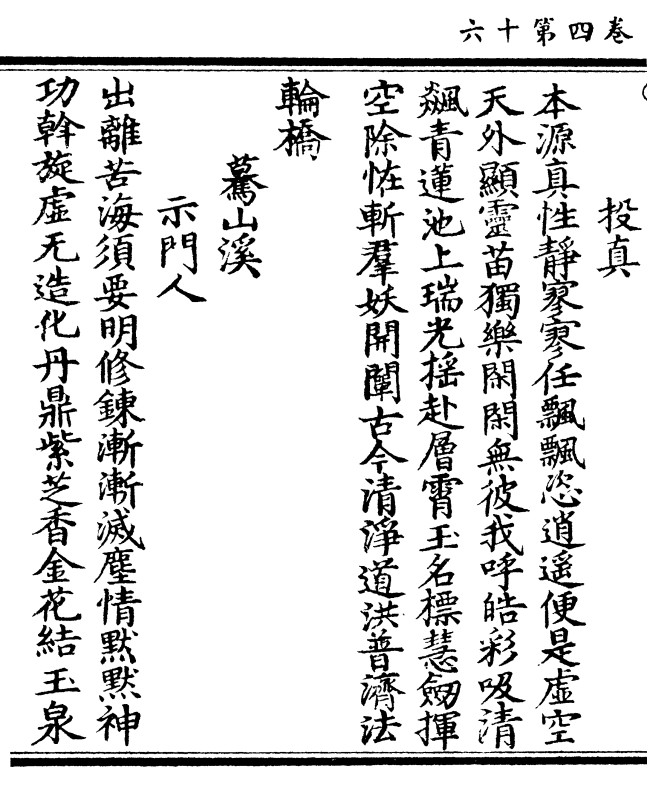 六十第四卷
投真
本源真性靜寥寥任飄飄恣逍遥便是虚空
天外顯靈苗獨樂閑閑無彼我呼皓彩吸清
飆青蓮池上瑞光揺赴層霄玉名標慧劒揮
空除恠斬羣妖開闡古今清淨道洪普濟法
輪橋
驀山溪
示門人
出離苦海須要明修鍊漸漸滅塵情黙黙神
功斡旋虚无造化丹鼎紫芝香金花結玉泉